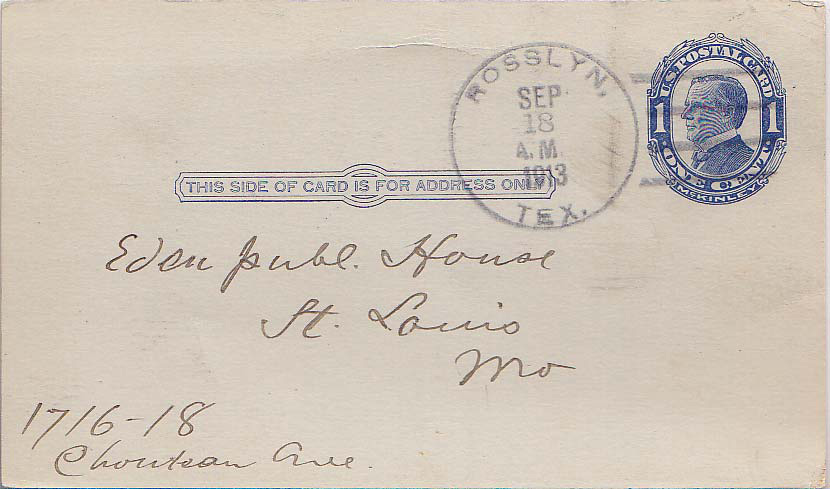 ROSSLYN,
SEP
18
A.M.
1913
TEX.
U.S. POSTAL CARD
1 1
ONE CENT
McKINLEY
THIS SIDE OF CARD IS FOR ADDRESS ONLY
Eden Publ. House
St. Louis
Mo
1716-18
Choutean Ave.